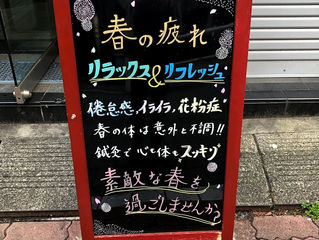 春の疲れ
リラックス&リフレッシュ
倦怠感,イライラ,花粉症
春の体は意外と不調!!
鍼灸で心も体もスッキリ
素敵な春を
過ごしませんか?